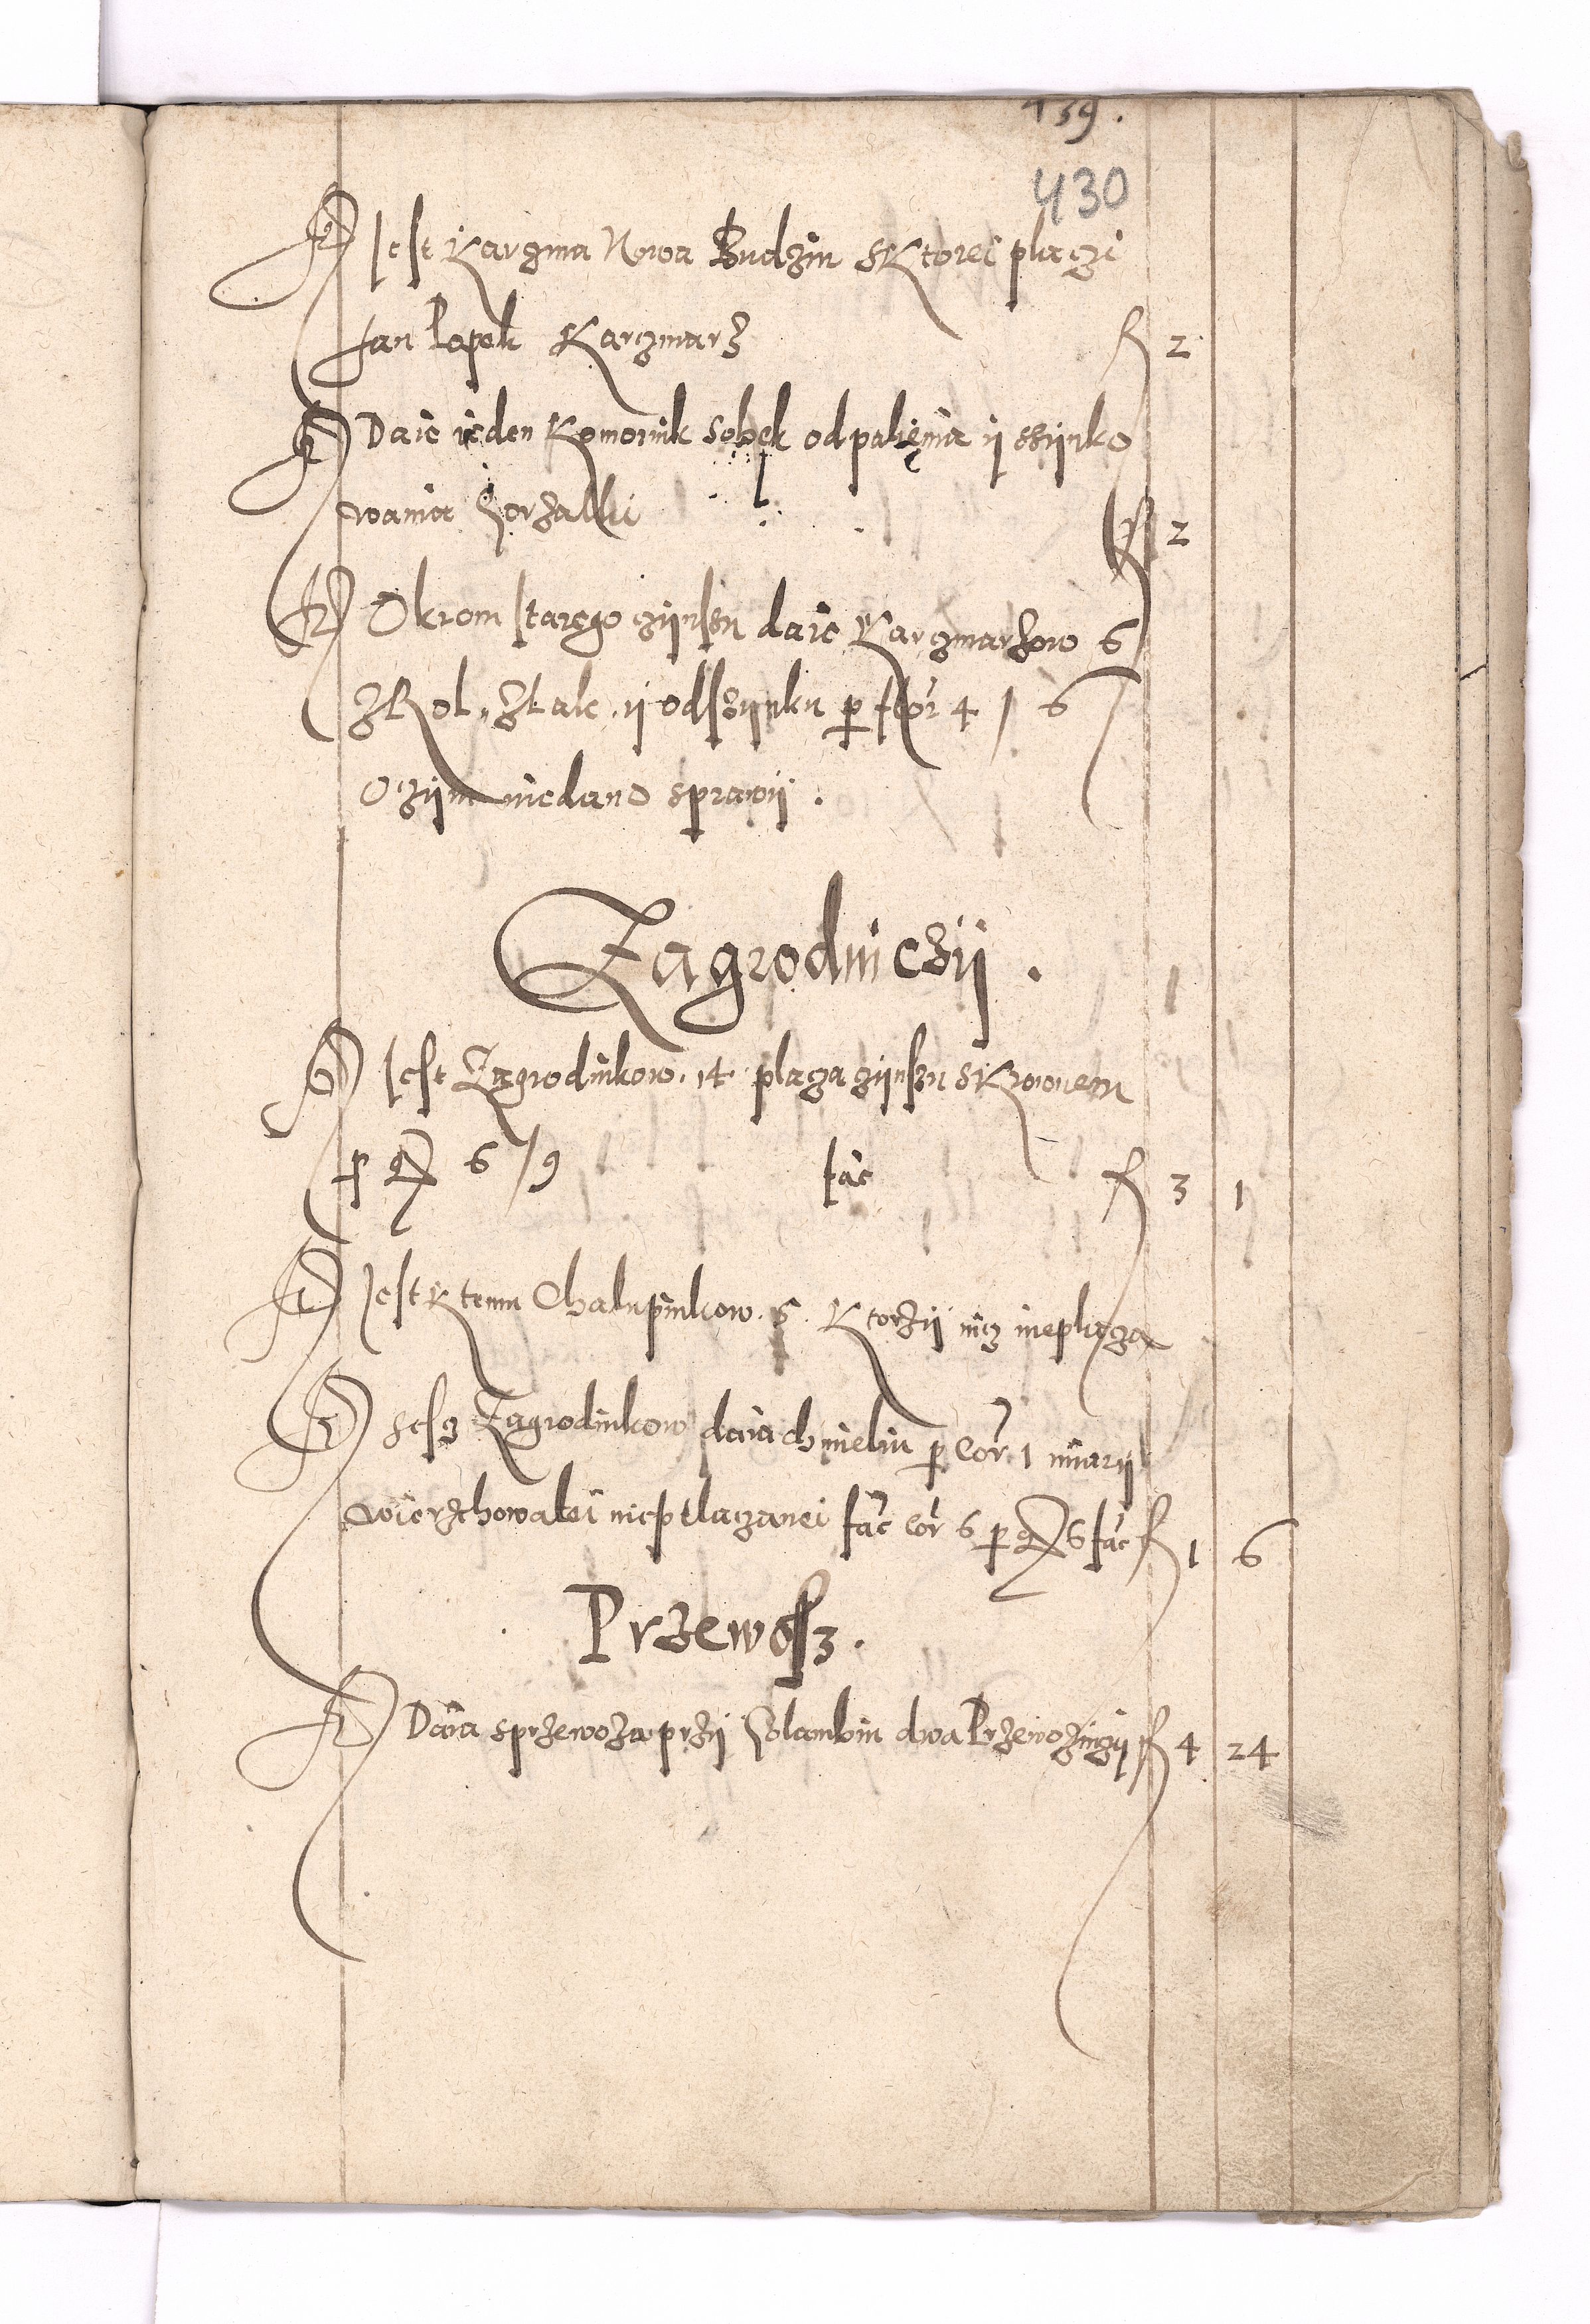 159.
430
Jest Karczma Nowa Budzyn s Ktorei placzi
Jan Papek Karczmarz f 2
Daie ieden Komornik Sobek od palięnia ij ssijnko
wania Gorzalki f 2
Okrom starego czijnszu daie Karczmarzow 6
z Rol, z Lak, ij od szijnku p flor 4 / 6
O czijm nie dano sprawij.
Zagrodniczij.
Jest Zagrodnikow. 14. placza czijnszu s Krzownem
p g 6 / 9 fac f 3 1
Jest k temu Chalupnikow. 5. Ktorzij nicz nieplacza
Sesz Zagrodnikow daia chmieliu p Cor. 1 miarij
wierzchowatei nieptlaczanei fac Cor 6 p g 6 fac f 1 6
Przewosz.
Daia s przewoza przij Golambiu dwa Przewoznicij f 4 24